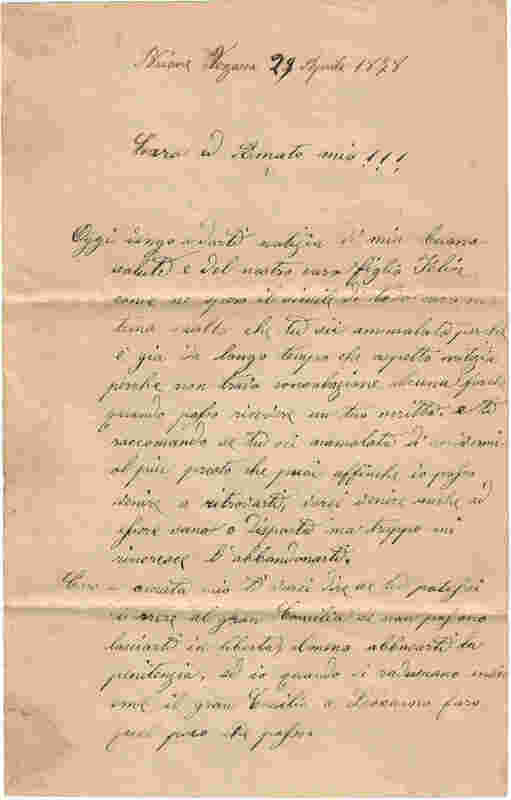 29 Aprile 1878
Caro ed Amato mio!!!
Oggi vengo a darti notizia di mia buona
salute e del nostro caro figlio Felice
come ne spero il simile di te
tema molto che tu sei ammalato perchè
è gia da lungo tempo che aspetto notizia
perche non trovo consolazione alcuna fuori
quando posso ricevere un tuo scritto. e ti
raccomando se tu sei ammalato di scrivermi
al più presto che puoi affinche io possa
venire a ritrovarti, verei venire anche ad
o Disposta ma troppo mi
rincresce d'abbandonarti.
Caro e amato mio ti verei dire se tu potessi
scrivere al gran Consilio se non possono
lasciarti in libertà almeno abbassarti la
penitenzia, ed io quando si radunano insie
eme il gran Consilio a Locarno faro
poco che posso